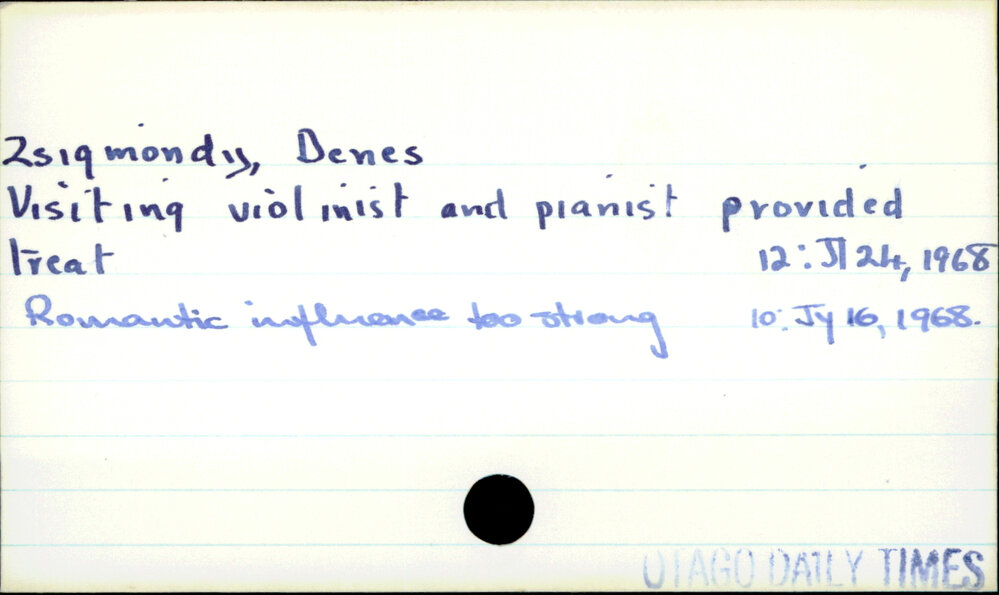 Zsigmondy, Denes
Visiting violinist and pianist provided
treat 12: Jl 24, 1968
Romantic influence too strong 10: Jy 16, 1968.
OTAGO DAILY TIMES